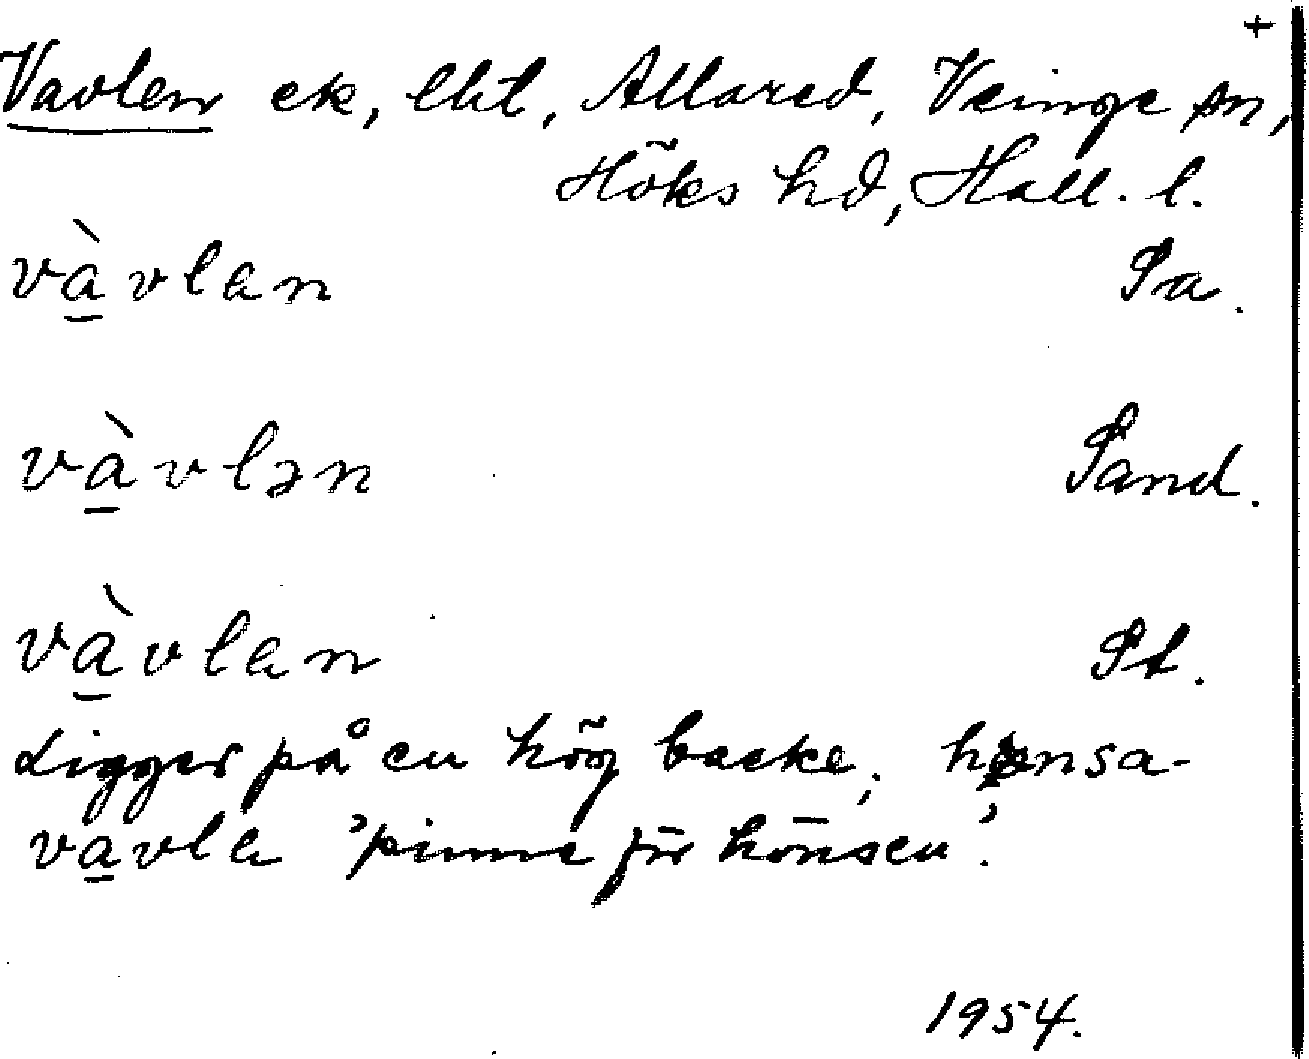 +
Vavlen ek, lht, Allared, Veinge sn,
Höks hd, Hall. l.
và̱vlan Sa.
và̱vlən Sand.
và̱vlan St.
Ligger på en hög backe; hønsa-
va̱vla 'pinne för hönsen'.
1954.